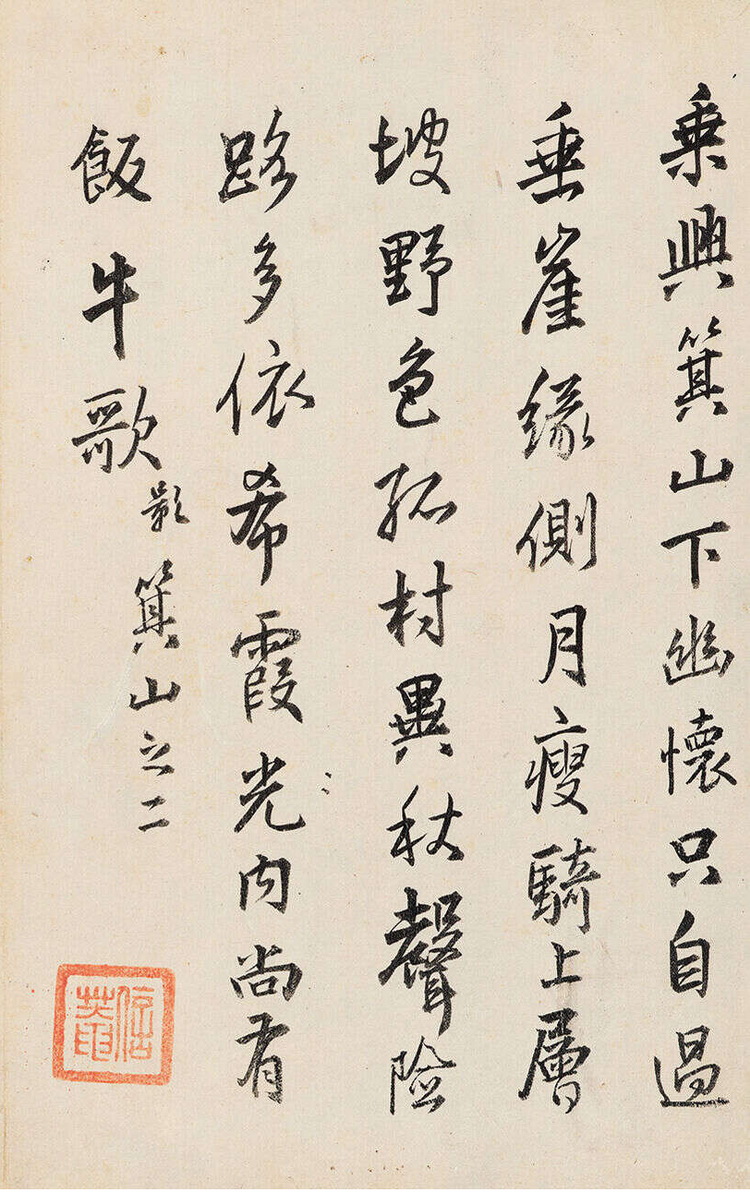 乗興箕山下幽懷只自過
垂崖緣側月瘦騎上層
坡野色孤村異秋聲險
路多依希霞光内尚有
飯牛歌
影
箕山之二